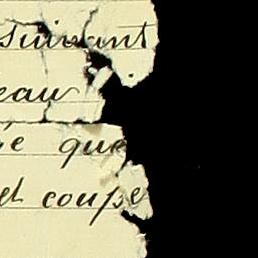 suivant
eau
é que
et coupe